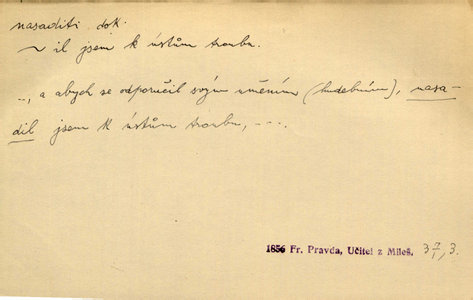 nasaditi dok.
~ il jsem k ústům troubu.
..., a abych se odporučil svým uměním (hudebním), nasa-
dil jsem k ústům troubu, ---.
1856 Fr. Pravda, Učitel z Mileš. 37/1, 3.